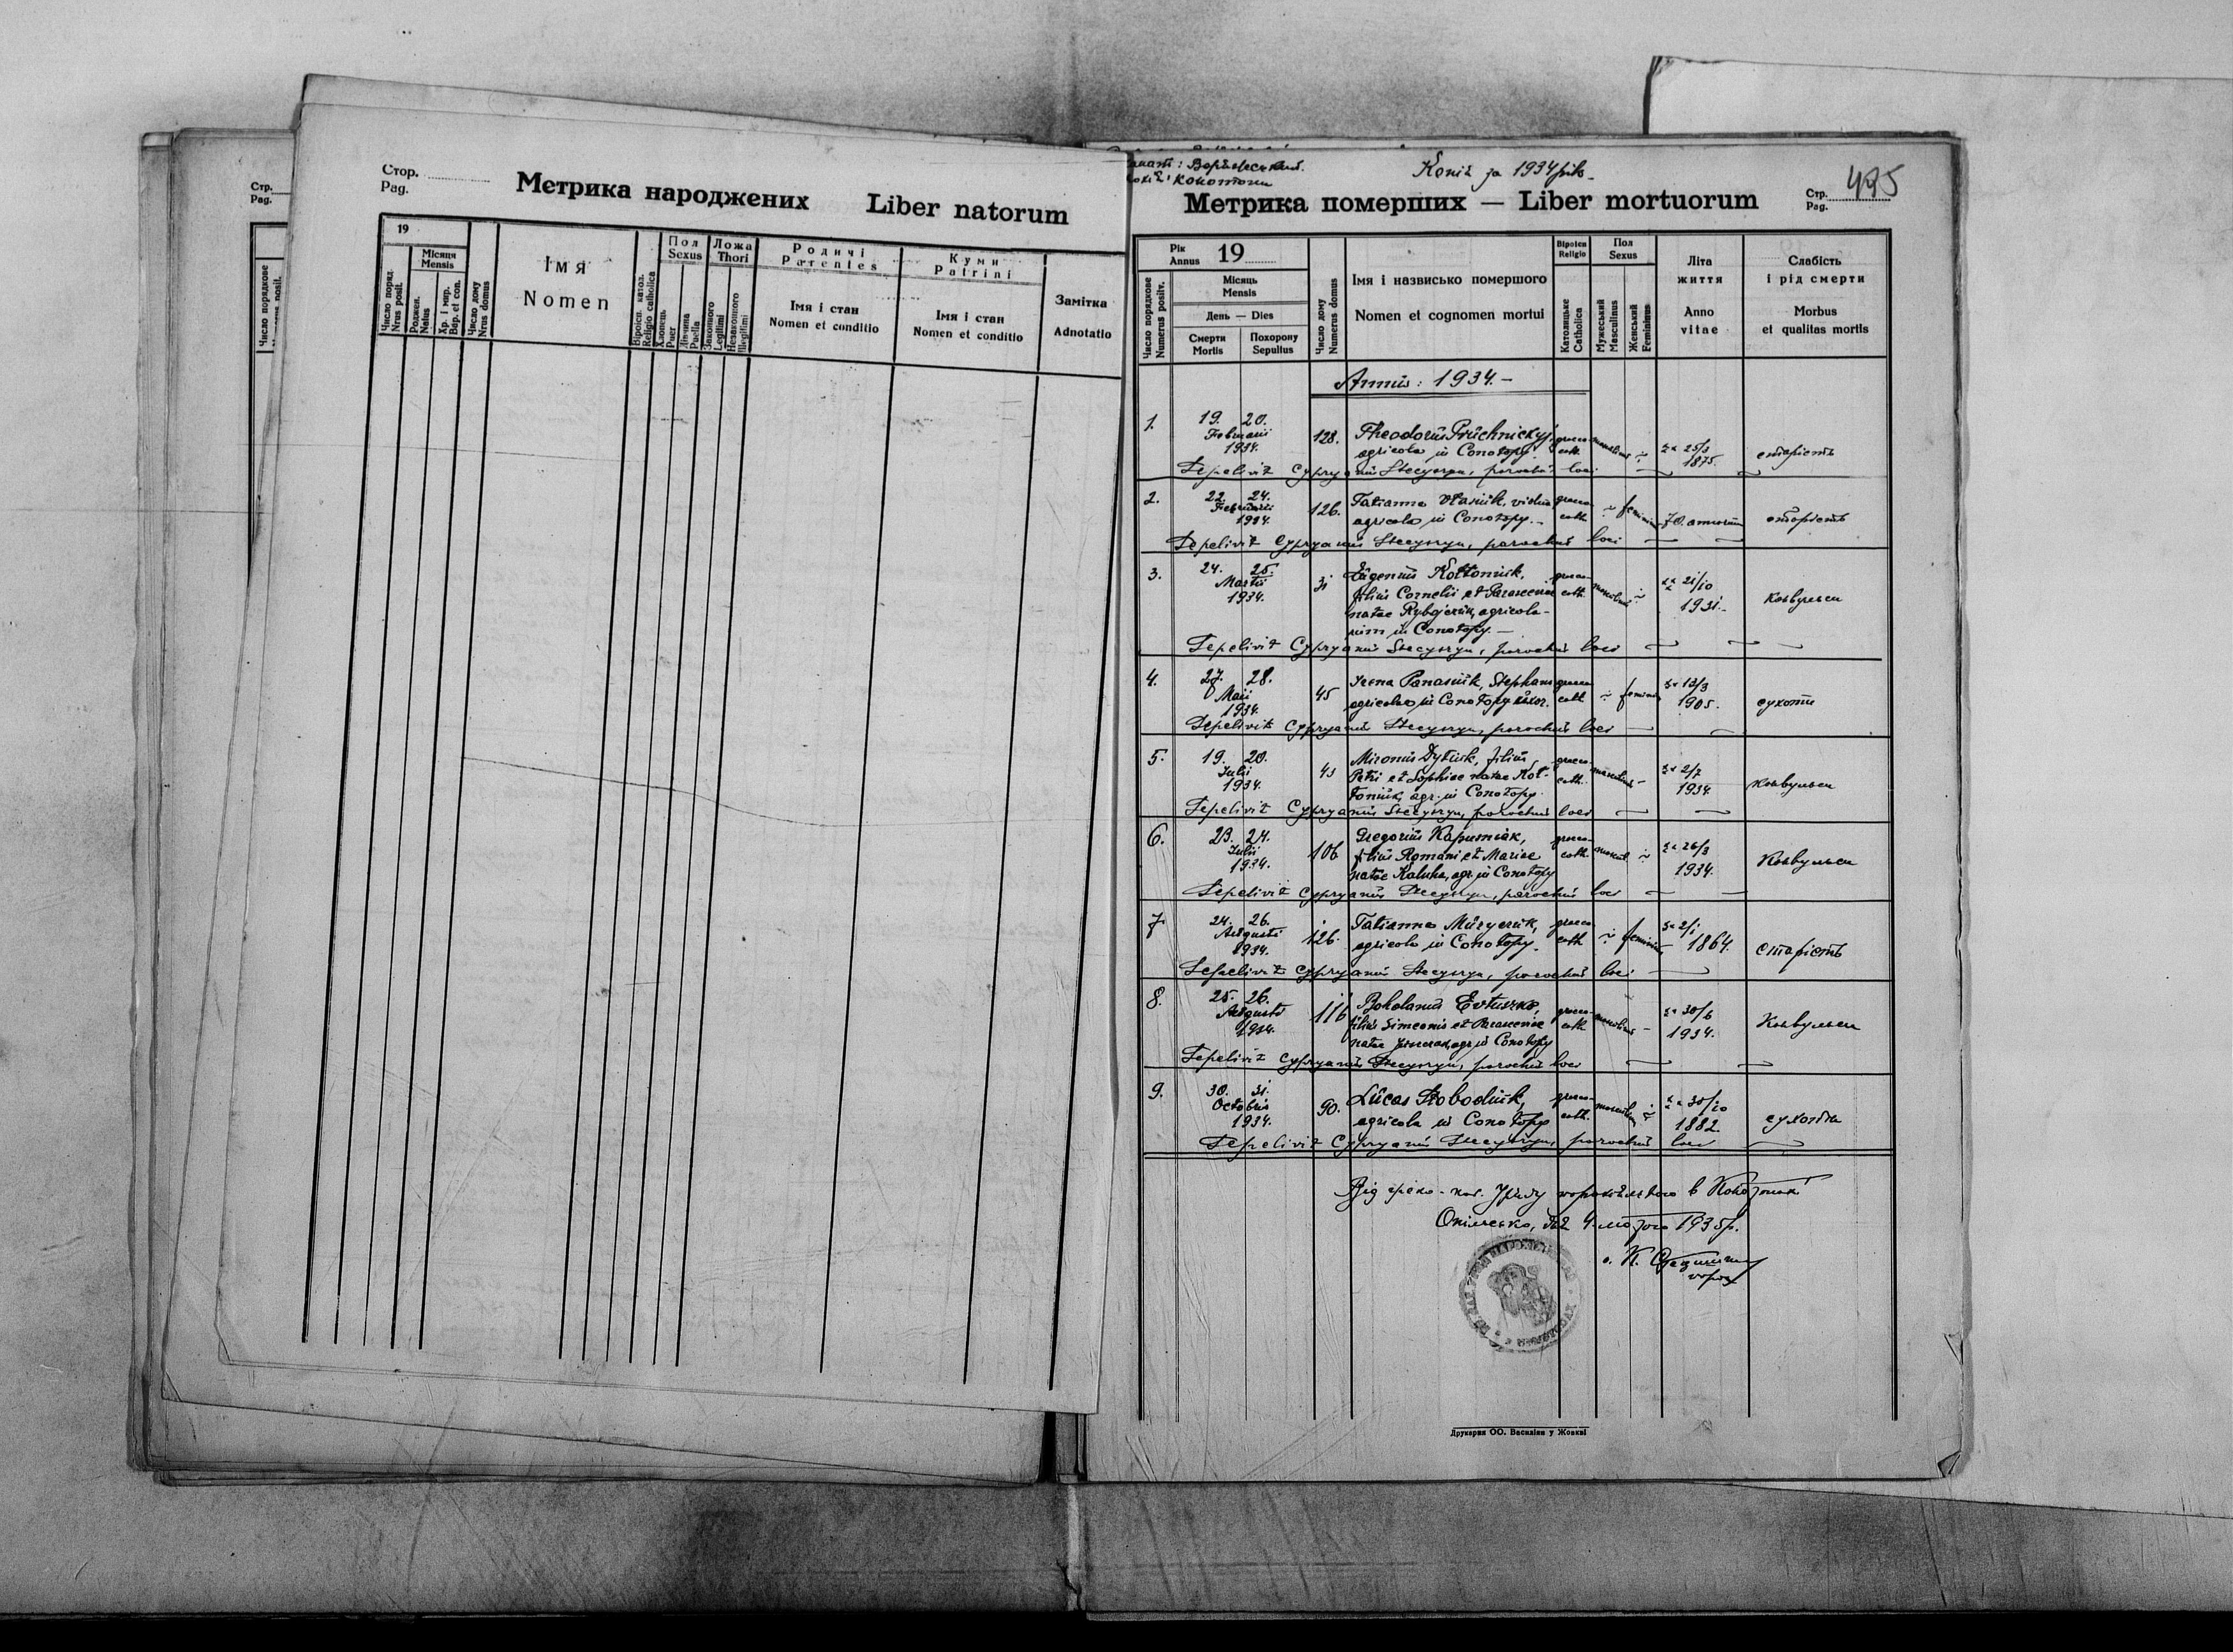 Стр.
Pag.
Число порядкове
Стор.
Pag.
Метрика народжених Liber natorum
19
Число поряд.
Nrus posit.
Місяця
Mensis
Роджен.
Natus
Хр. і мир.
Bap. et con.
Число дому
Nrus domus
Імя
Nomen
Віроісп. катол.
Religio catholica
Пол
Sexus
Хлопець
Puer
Дівчина
Puella
Ложа
Thori
Законного
Legitimi
Незаконного
Illegitimi
Родичі
Parentes
Імя і стан
Nomen et conditio
Куми
Patrini
Імя і стан
Nomen et conditio
Замітка
Adnotatio
Копія за 1934 рік
Конотопи
Метрика померших — Liber mortuorum
Стр.
Pag.
495
Рік
Annus 19
Число порядкове
Numerus positv.
Місяць
Mensis
День — Dies
Смерти
Mortis
Похорону
Sepultus
Число дому
Numerus domus
Імя і назвисько помершого
Nomen et cognomen mortui
Віроісп
Religio
Католицьке
Catholica
Пол
Sexus
Мужеський
Masculinus
Женський
Femininus
Літа
життя
Anno
vitae
Слабість
і рід смерти
Morbus
et qualitas mortis
Annus: 1934.-
1. 19. 20. Februarii 1934. 128. Theodorus Prüchnickyj, graeco-
agricola in Conotopy. cath. masculinus 25/3 1875. старість
Sepelivit Cypryanus Stecyszyn, parochus loci
2. 22. 24. Februarii 1934. 126. Tatianna Stasiuk, vidua graeco
agricola in Conotopy.- cath. feminin 70 annorum старість
Sepelivit Cypryanus Stecyszyn, parochus loci
3. 24. 25. Martii 1934. 31 Eugenius Kottoniuk, graeco-
filius Cornelii et Parasceviae cath. masculinus 21/10 1931.- конвульси
natae Rybajczuk, agricola-
rum in Conotopy.-
Sepelivit Cypryanus Stecyszyn, parochus loci
4. 27. 28. Maii 1934. 45 Irena Panasiuk, Stephani graeco
agricolae in Conotopy uxor. cath feminin 13/3 1905. сухоти
Sepelivit Cypryanus Stecyszyn, parochus loci
5. 19. 20. Julii 1934. 43 Mironus Dytiuk, filius graeco-
Petri et Sophiae natae Kot- cath. masculinus 2/7 1934 конвульси
toniuk, agr. in Conotopy.
Sepelivit Cypryanus Stecyszyn, parochus loci
6. 23. 24. Julii 1934. 106 Gregorius Kapusniak, graeco-
filius Romani et Mariae cath. mascul 26/3 1934. Конвульси
natae Kaluha, agr. in Conotopy
Sepelivit Cypryanus Stecyszyn, parochus loci
7. 24. 26. Augusti 1934. 126. Tatianna Müryczuk, graeco
agricola in Conotopy. cath feminin 2/1 1864. старість
Sepelivit Cypryanus Stecyszyn, parochus loci
8. 25. 26. Augusti 1934. 116 Bohdanus Evtuszko, graeco-
filius Simeonis et Parasceviae cath masculinus 30/6 1934. Конвульси
natae agr. in Conotopy
Sepelivit Cypryanus Stecyszyn, parochus loci
9. 30. 31. Octobris 1934. 90. Lucas Stobodiuk, graeco-
agricola in Conotopy cath. masculin 30/10 1882. сухоти
Sepelivit Cypryanus Stecyszyn, parochus loci
Від греко-кат. Уряду парохіяльного в Конотопах
Опілсько, дня 4 лютого 1935 р.
о. К. Стецишин
парох
Друкарня ОО. Василіян у Жовкві